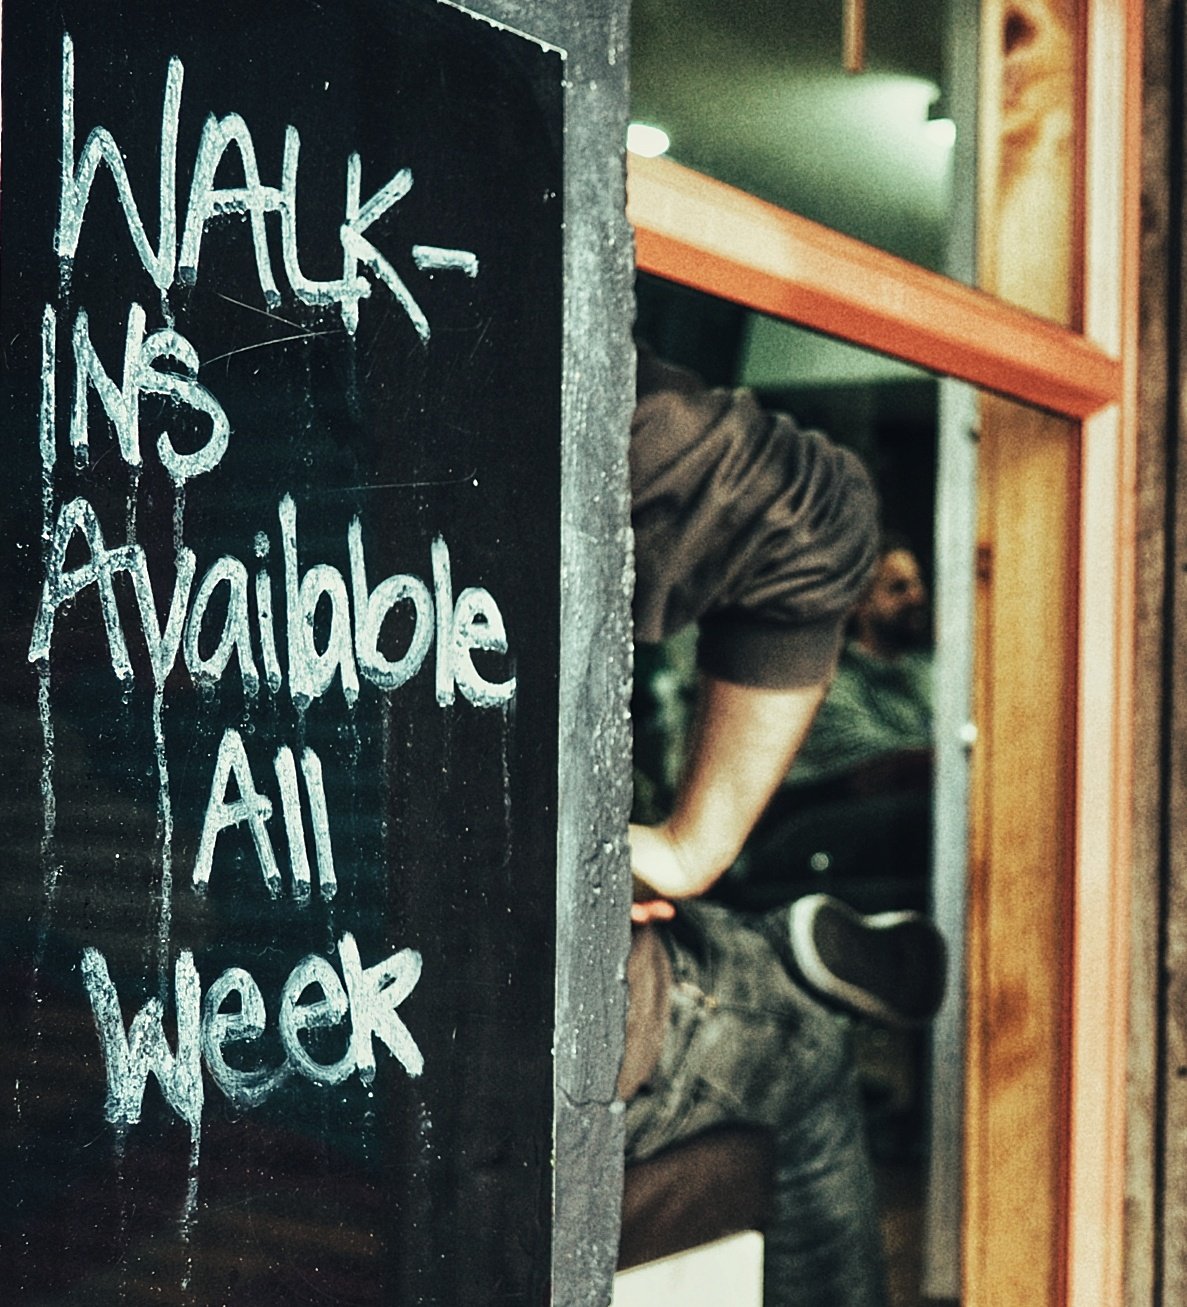 WALK-
INS
Available
All
week